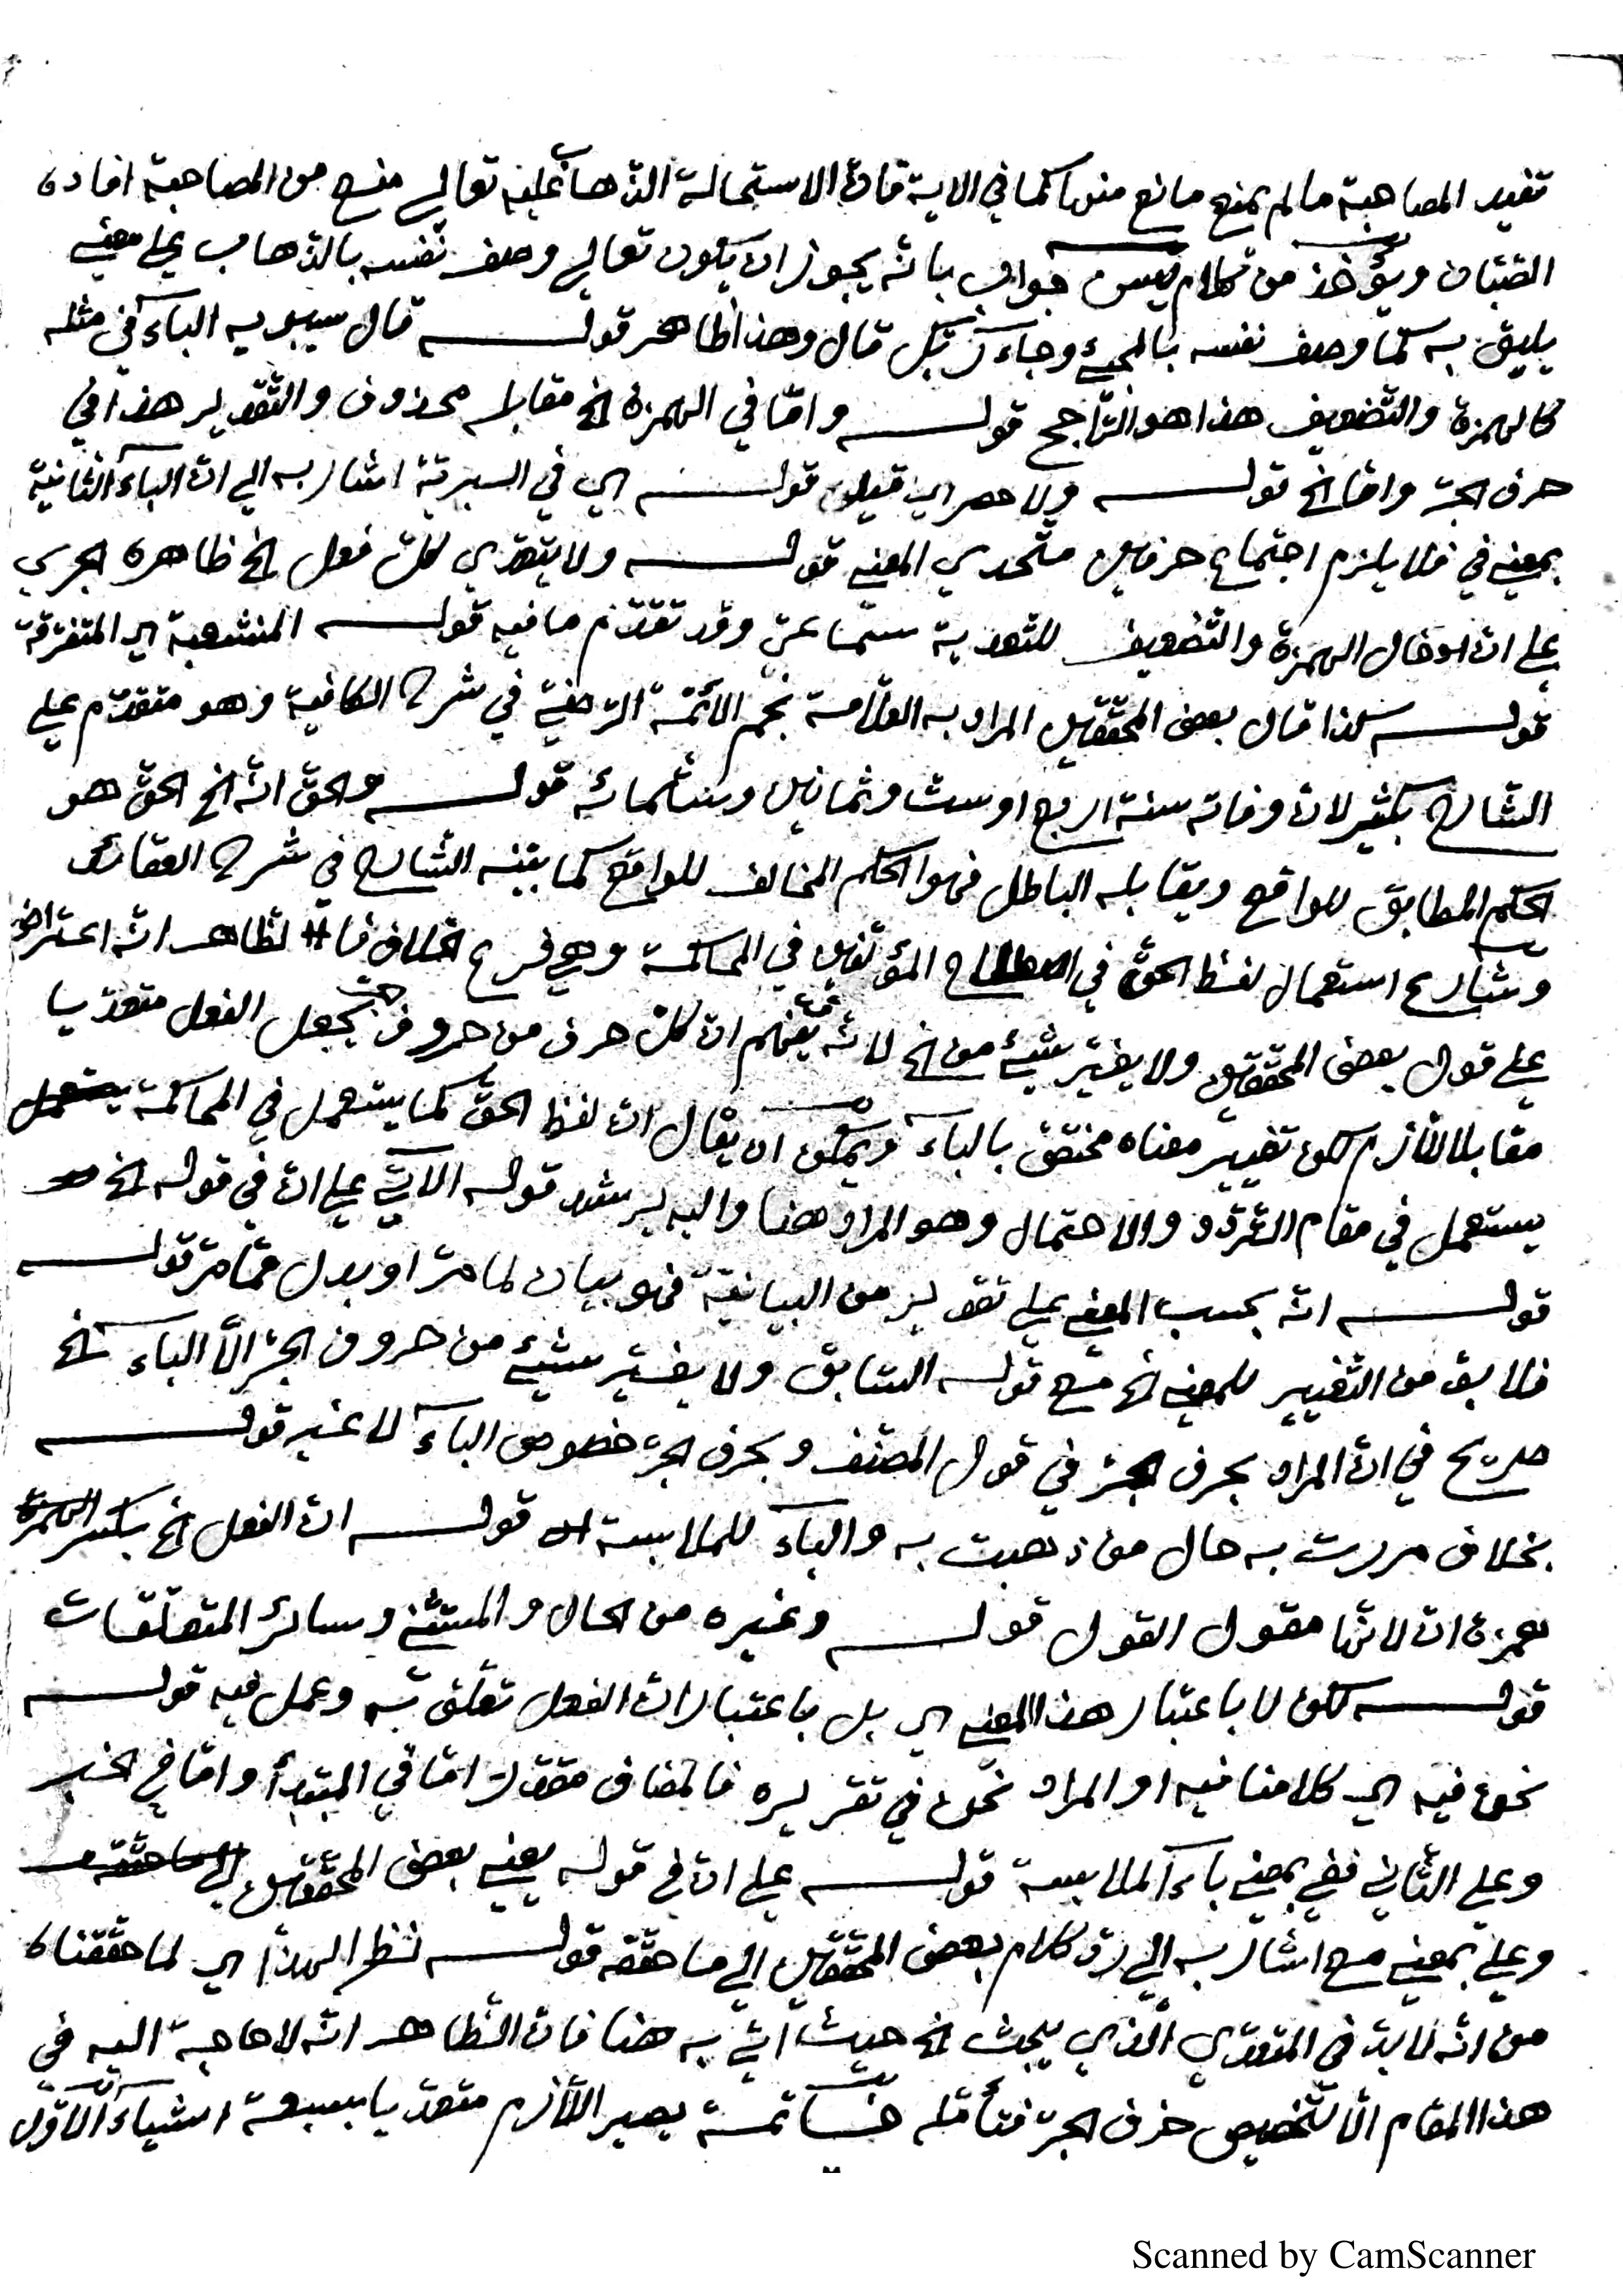 تفيد المصاحبة ما لم يمنع مانع منها كما في الاية فان الاستحالة الذهاب عليه تعالى منع من المصاحبة افاده
الصّبّان ويؤخذ من كلام يس جوابه بانّه يجوز ان يكون تعالى وصف نفسه بالذّهاب على معنى
يليق به كما وصف نفسه بالمجئ وجاء ربّك قال وهذا ظاهر قولـــه قال سيبويه الباء في مثله
كالهمزة والتّضعيف هذا هو الرّاجح قولـــه وامّا في الهمزة الخ مقابله محذوف والتّقدير هذا في
حرف الجرّ وامّا الخ قولـــه ولا حصر اي قيلون قولـــه اي في السببيّة اشار به الى انّ الباء الثّانية
بمعنى في فلا يلزم اجتماع حرفين متّحدي المعنى قولـــه ولا يتعدّي كلّ فعل الخ ظاهره الجري
على انّ ادخال الهمزة والتّضعيف للتّعدية سماعيّ وقد تقدّم ما فيه قولـــه المنشعبة اي المتفرّقة
قولـــه كذا قال بعض المحقّقين المراد به العلّامة نجم الائمّة الرّضيّ في شرح الكافية وهو متقدّم على
الشّارح بكثير لانّ وفاته سنة اربع او ستّ وثمانين وستّمائة قولـــه والحقّ انّه الخ الحقّ هو
الحكم المطابق للواقع ويقابله الباطل فهو الحكم المخالف للواقع كما بيّنه الشّارح في شرح العقائد
وشايع استعمال لفظ الحقّ في اصطلاح المؤلّفين في المحاكمة وهي فرع الخلاف فالظاهر انّه اعتراض
على قول بعض المحقّقين ولا يغيّر شيئ من الخ لانّه يفهم انّ كلّ حرف من حروف جرّ يجعل الفعل متعدّيا
مقابلا للّازم لكن تغيير معناه مختصّ بالباء ويمكن ان يقال انّ لفظ الحقّ كما يستعمل في المحاكمة يستعمل
يستعمل في مقام التّردّد والاحتمال وهو المراد هنا واليه يرشد قوله الآتي على انّ في قوله الخ
قولـــه انّه بحسب المعنى على تقدير من البيانيّة فهو بيان لما مرّ او بدل ممّا مرّ قولـــه
فلا بدّ من التّغيير للمعنى الخ مع قوله السّابق ولا يغيّر شيئ من حروف الجرّ الّا الباء الخ
صريح في انّ المراد بحرف الجرّ في قول المصنّف وبحرف الجرّ خصوص الباء لا غير قولـــه
بخلاف مررت به حال من ذهبت به والباء للملابسة قولـــه انّ الفعل الخ بكسر الهمزة
همزة انّ لانّها مقول القول قولـــه وغيره من الحال والمستثنى وسائر المتعلّقات
قولـــه لكن لا باعتبار هذا المعنى اي بل باعتبار انّ الفعل تعلّق به وعمل فيه قولـــه
نحن فيه اي كلامنا فيه او المراد نحن في تقريره فالمضاف مقدّر امّا في المبتدأ وامّا في الخبر
وعلى الثّاني ففي بمعنى باء الملابسة قولـــه على انّ في قوله يعني بعض المحقّقين
وعلى بمعنى مع اشار به الى ردّ كلام بعض المحقّقين الى ما حقّقه قولـــه نظر الهذا اي لما حقّقناه
من انّه لا بدّ في المتعدّي الّذي يبحث الخ حيث اتي به هنا فانّ الظّاهر انّه لا حاجة اليه في
هذا المقام الّا لتّخصيص حرف الجرّ فتأمّله خـــاتمة يصير اللّازم متعدّيا بسبعة اشياء الاوّل
Scanned by CamScanner